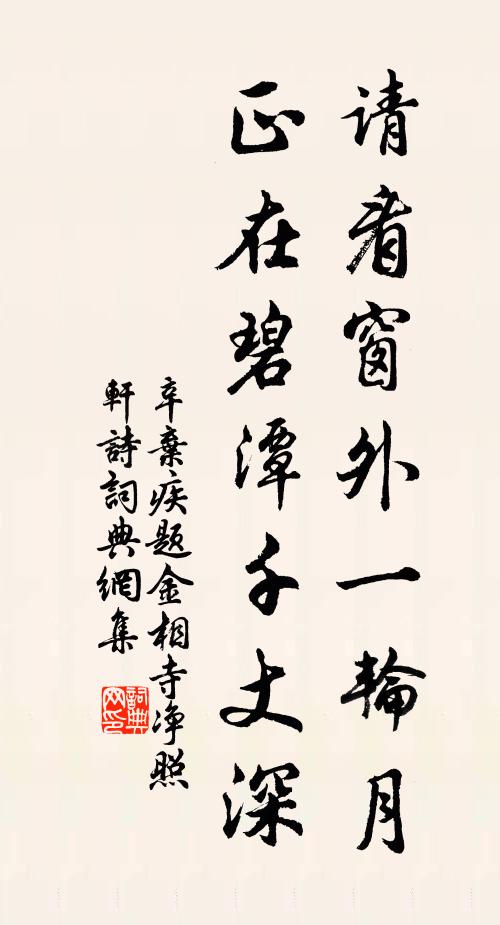 请看窗外一輪月
正在碧潭千丈深
辛棄疾题金相寺净照
軒詩詞典網集
詞典
网印